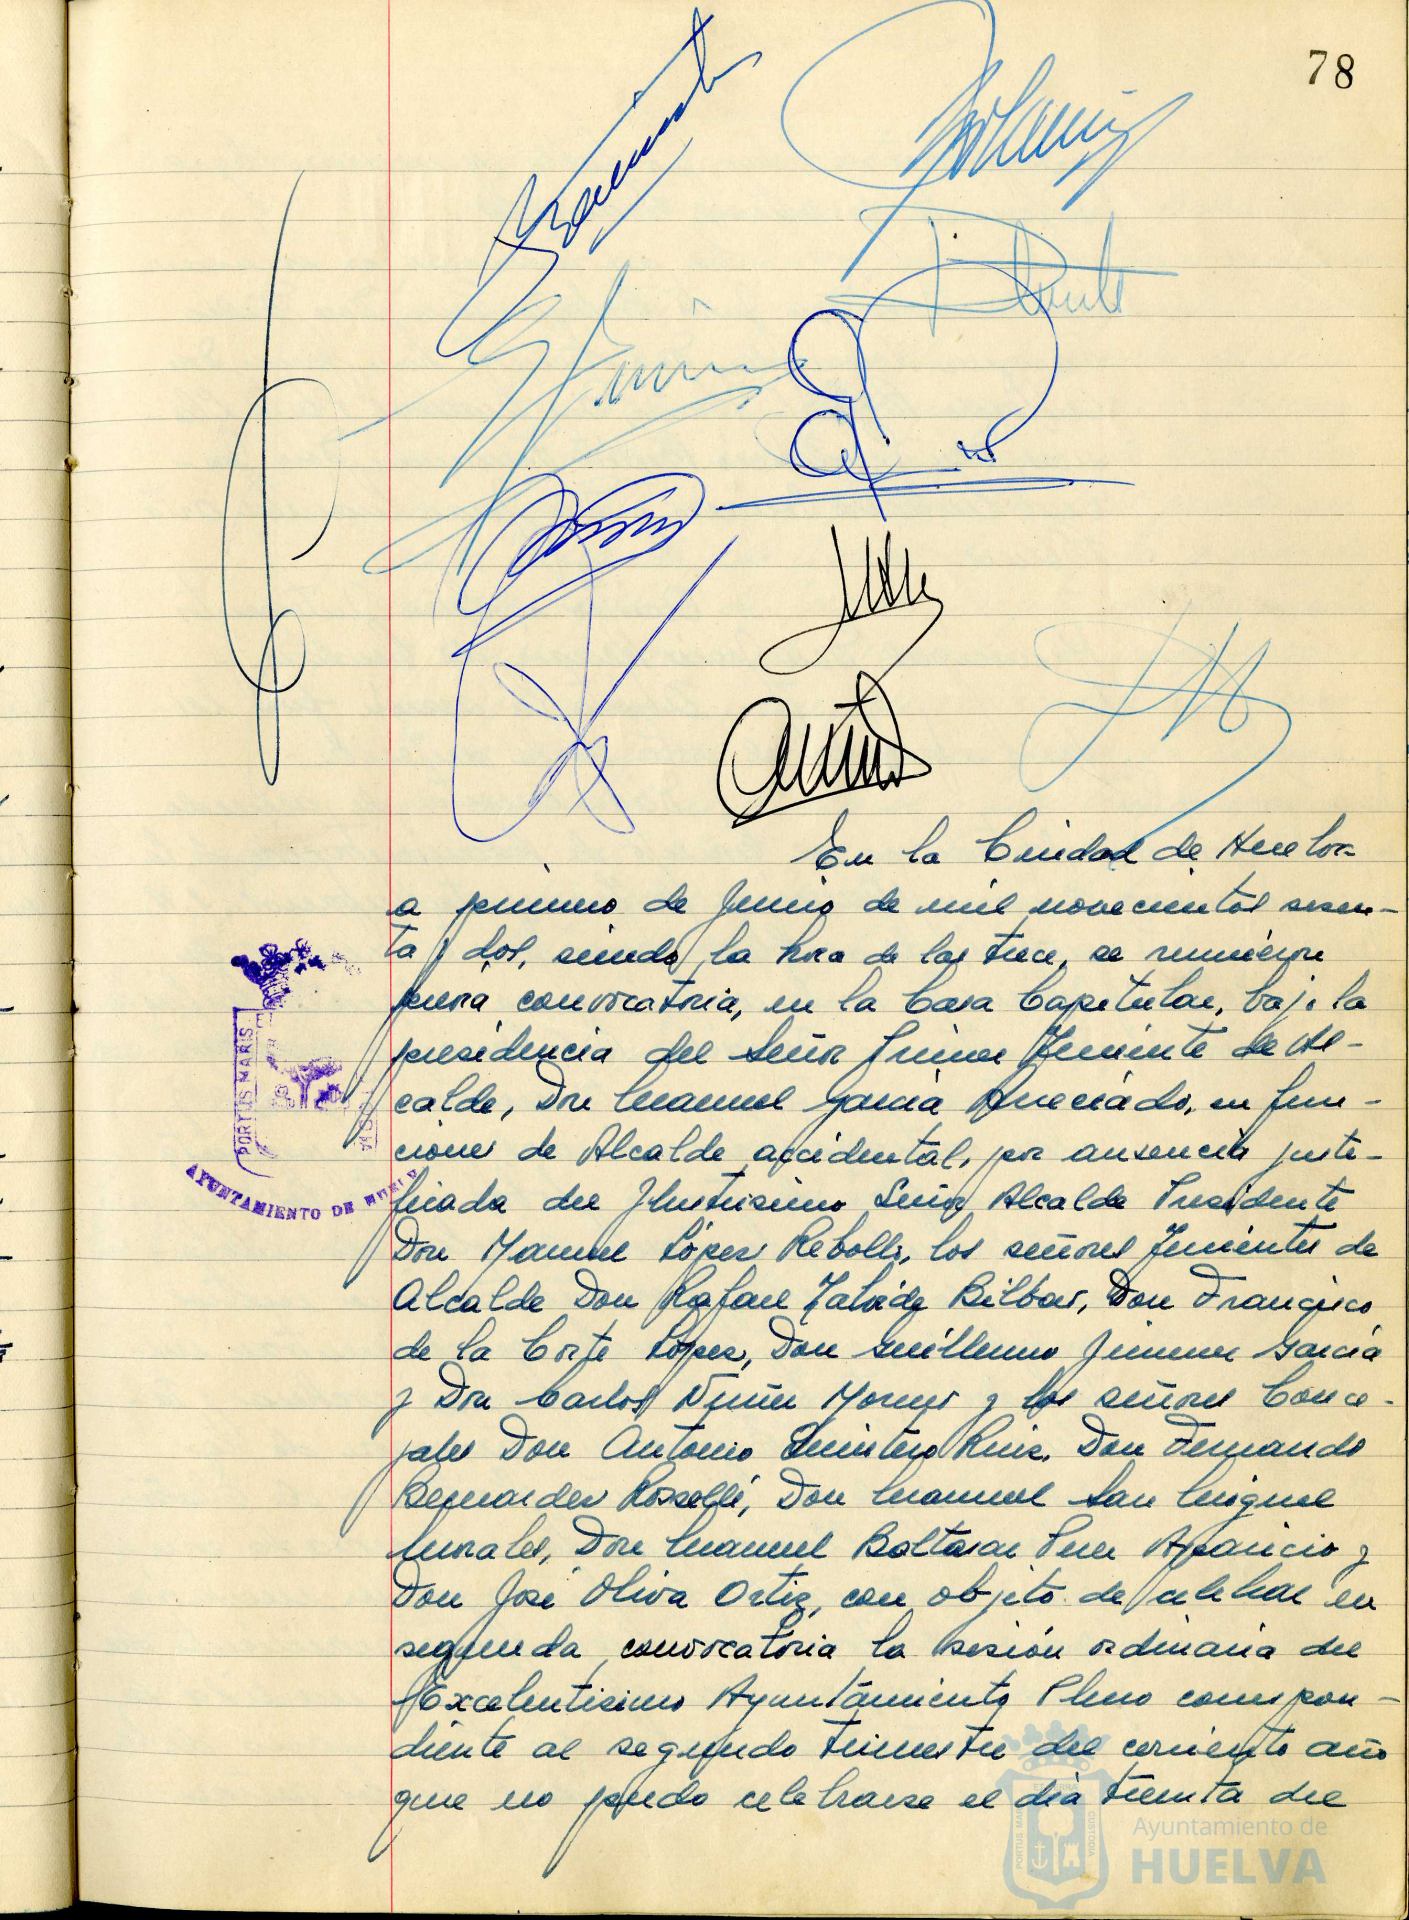 78
En la Ciudad de Huelva
a primero de Junio de mil novecientos sesen-
ta y dos, siendo la hora de las trece, se reunieron
previa convocatoria, en la Casa Capitular, bajo la
presidencia del Señor Primer Teniente de Al-
calde, Don Manuel García, en fun-
ciones de Alcalde accidental, por ausencia justi-
ficada del Ilustrísimo Señor Alcalde Presidente
Don Manuel López Rebollo, los señores Tenientes de
Alcalde Don Rafael Bilbao, Don Francisco
de la Corte López, Don Guillermo Jimenez García
y Don Carlos Nuñez y los señores Conce-
jales Don Antonio Quintero Ruiz, Don Fernando
Bernardez Rosselló, Don Manuel San Miguel
Morales, Don Manuel Baltasar Perez Aparicio y
Don José Oliva Ortiz, con objeto de celebrar en
segunda convocatoria la sesión ordinaria del
Excelentísimo Ayuntamiento Pleno correspon-
diente al segundo trimestre del corriente año
que no pudo celebrarse el día treinta del
PORTUS MARIS
AYUNTAMIENTO DE HUELVA
Ayuntamiento de
HUELVA